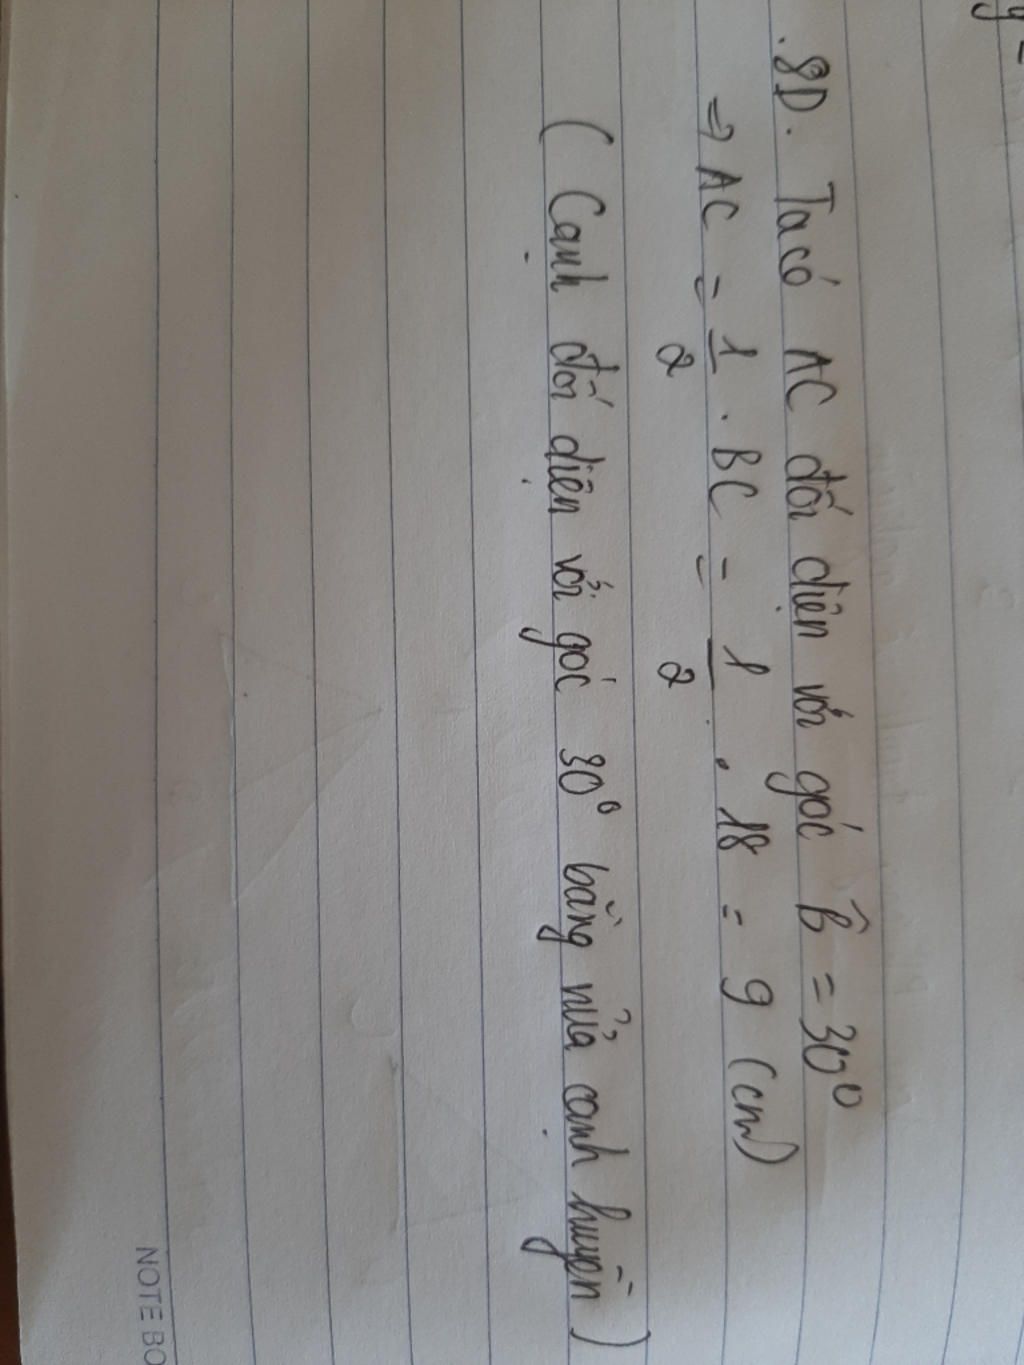 y =
.8D. Ta có AC đối diện với góc B̂ = 30⁰
⇒ AC = 1/2 . BC = 1/2 . 18 = 9 (cm)
( Cạnh đối diện với góc 30⁰ bằng nửa cạnh huyền )
NOTE BO